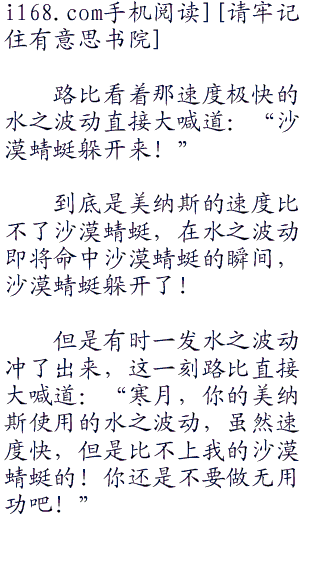 i168.com手机阅读][请牢记
住有意思书院]
路比看着那速度极快的
水之波动直接大喊道：“沙
漠蜻蜓躲开来！”
到底是美纳斯的速度比
不了沙漠蜻蜓，在水之波动
即将命中沙漠蜻蜓的瞬间，
沙漠蜻蜓躲开了！
但是有时一发水之波动
冲了出来，这一刻路比直接
大喊道：“寒月，你的美纳
斯使用的水之波动，虽然速
度快，但是比不上我的沙漠
蜻蜓的！你还是不要做无用
功吧！”